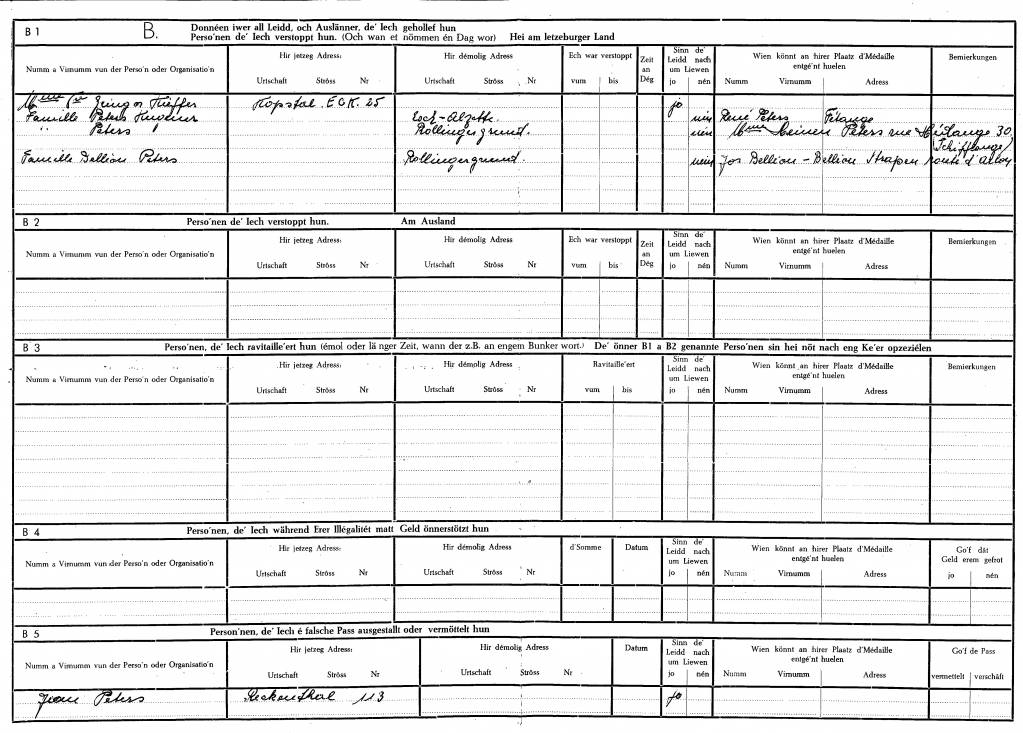 B 1 B. Donnéen iwer all Leidd, och Auslänner, de' Iech gehollef hun
Perso'nen de' Iech verstoppt hun. (Och wan et nömmen én Dag wor) Hei am letzeburger Land
Numm a Virnumm vun der Perso'n oder Organisatio'n
Hir jetzeg Adress:
Urtschaft Ströss Nr
Hir démolig Adress:
Urtschaft Ströss Nr
Ech war verstoppt
vum bis
Zeit
an
Dég
Sinn de'
Leidd nach
um Liewen
jo nén
Wien könnt an hirer Plaatz d'Médaille
entgé'nt huelen
Numm Virnumm Adress
Bemierkungen
Kieffer Kopstal. 25 jo
Famille Peters Esch-Alzette nein René Peters
" Peters Rollingergrund. nein Mme Peters rue 30,
(Schifflange)
Famille Dellion Peters Rollingergrund. nein Jos Dellion - Dellion route d'Arlon
B 2 Perso'nen de' Iech verstoppt hun. Am Ausland
Numm a Virnumm vun der Perso'n oder Organisatio'n
Hir jetzeg Adress:
Urtschaft Ströss Nr
Hir démolig Adress
Urtschaft Ströss Nr
Ech war verstoppt
vum bis
Zeit
an
Dég
Sinn de'
Leidd nach
um Liewen
jo nén
Wien könnt an hirer Plaatz d'Médaille
entgé'nt huelen
Numm Virnumm Adress
Bemierkungen
B 3 Perso'nen, de' Iech ravitaille'ert hun (émol oder lä nger Zeit, wann der z.B. an engem Bunker wort.) De' önner B1 a B2 genannte Perso'nen sin hei nöt nach eng Ke'er opzeziélen
Numm a Virnumm vun der Perso'n oder Organisatio'n
Hir jetzeg Adress:
Urtschaft Ströss Nr
Hir démolig Adress
Urtschaft Ströss Nr
Ravitaille'ert
vum bis
Sinn de'
Leidd nach
um Liewen
jo nén
Wien könnt an hirer Plaatz d'Médaille
entgé'nt huelen
Numm Virnumm Adress
Bemierkungen
B 4 Perso'nen, de' Iech während Erer Illégalitét matt Geld önnerstötzt hun
Numm a Virnumm vun der Perso'n oder Organisatio'n
Hir jetzeg Adress:
Urtschaft Ströss Nr
Hir démolig Adress
Urtschaft Ströss Nr
d'Somme
Datum
Sinn de'
Leidd nach
um Liewen
jo nén
Wien könnt an hirer Plaatz d'Médaille
entgé'nt huelen
Numm Virnumm Adress
Go'f dât
Geld erem gefrot
jo nén
B 5 Person'nen, de' Iech é falsche Pass ausgestallt oder vermöttelt hun
Numm a Virnumm vun der Perso'n oder Organisatio'n
Hir jetzeg Adress:
Urtschaft Ströss Nr
Hir démolig Adress
Urtschaft Ströss Nr
Datum
Sinn de'
Leidd nach
um Liewen
jo nén
Wien könnt an hirer Plaatz d'Médaille
entgé'nt huelen
Numm Virnumm Adress
Go'f de Pass
vermettelt verschäft
Jean Peters Reckenthal 113 jo